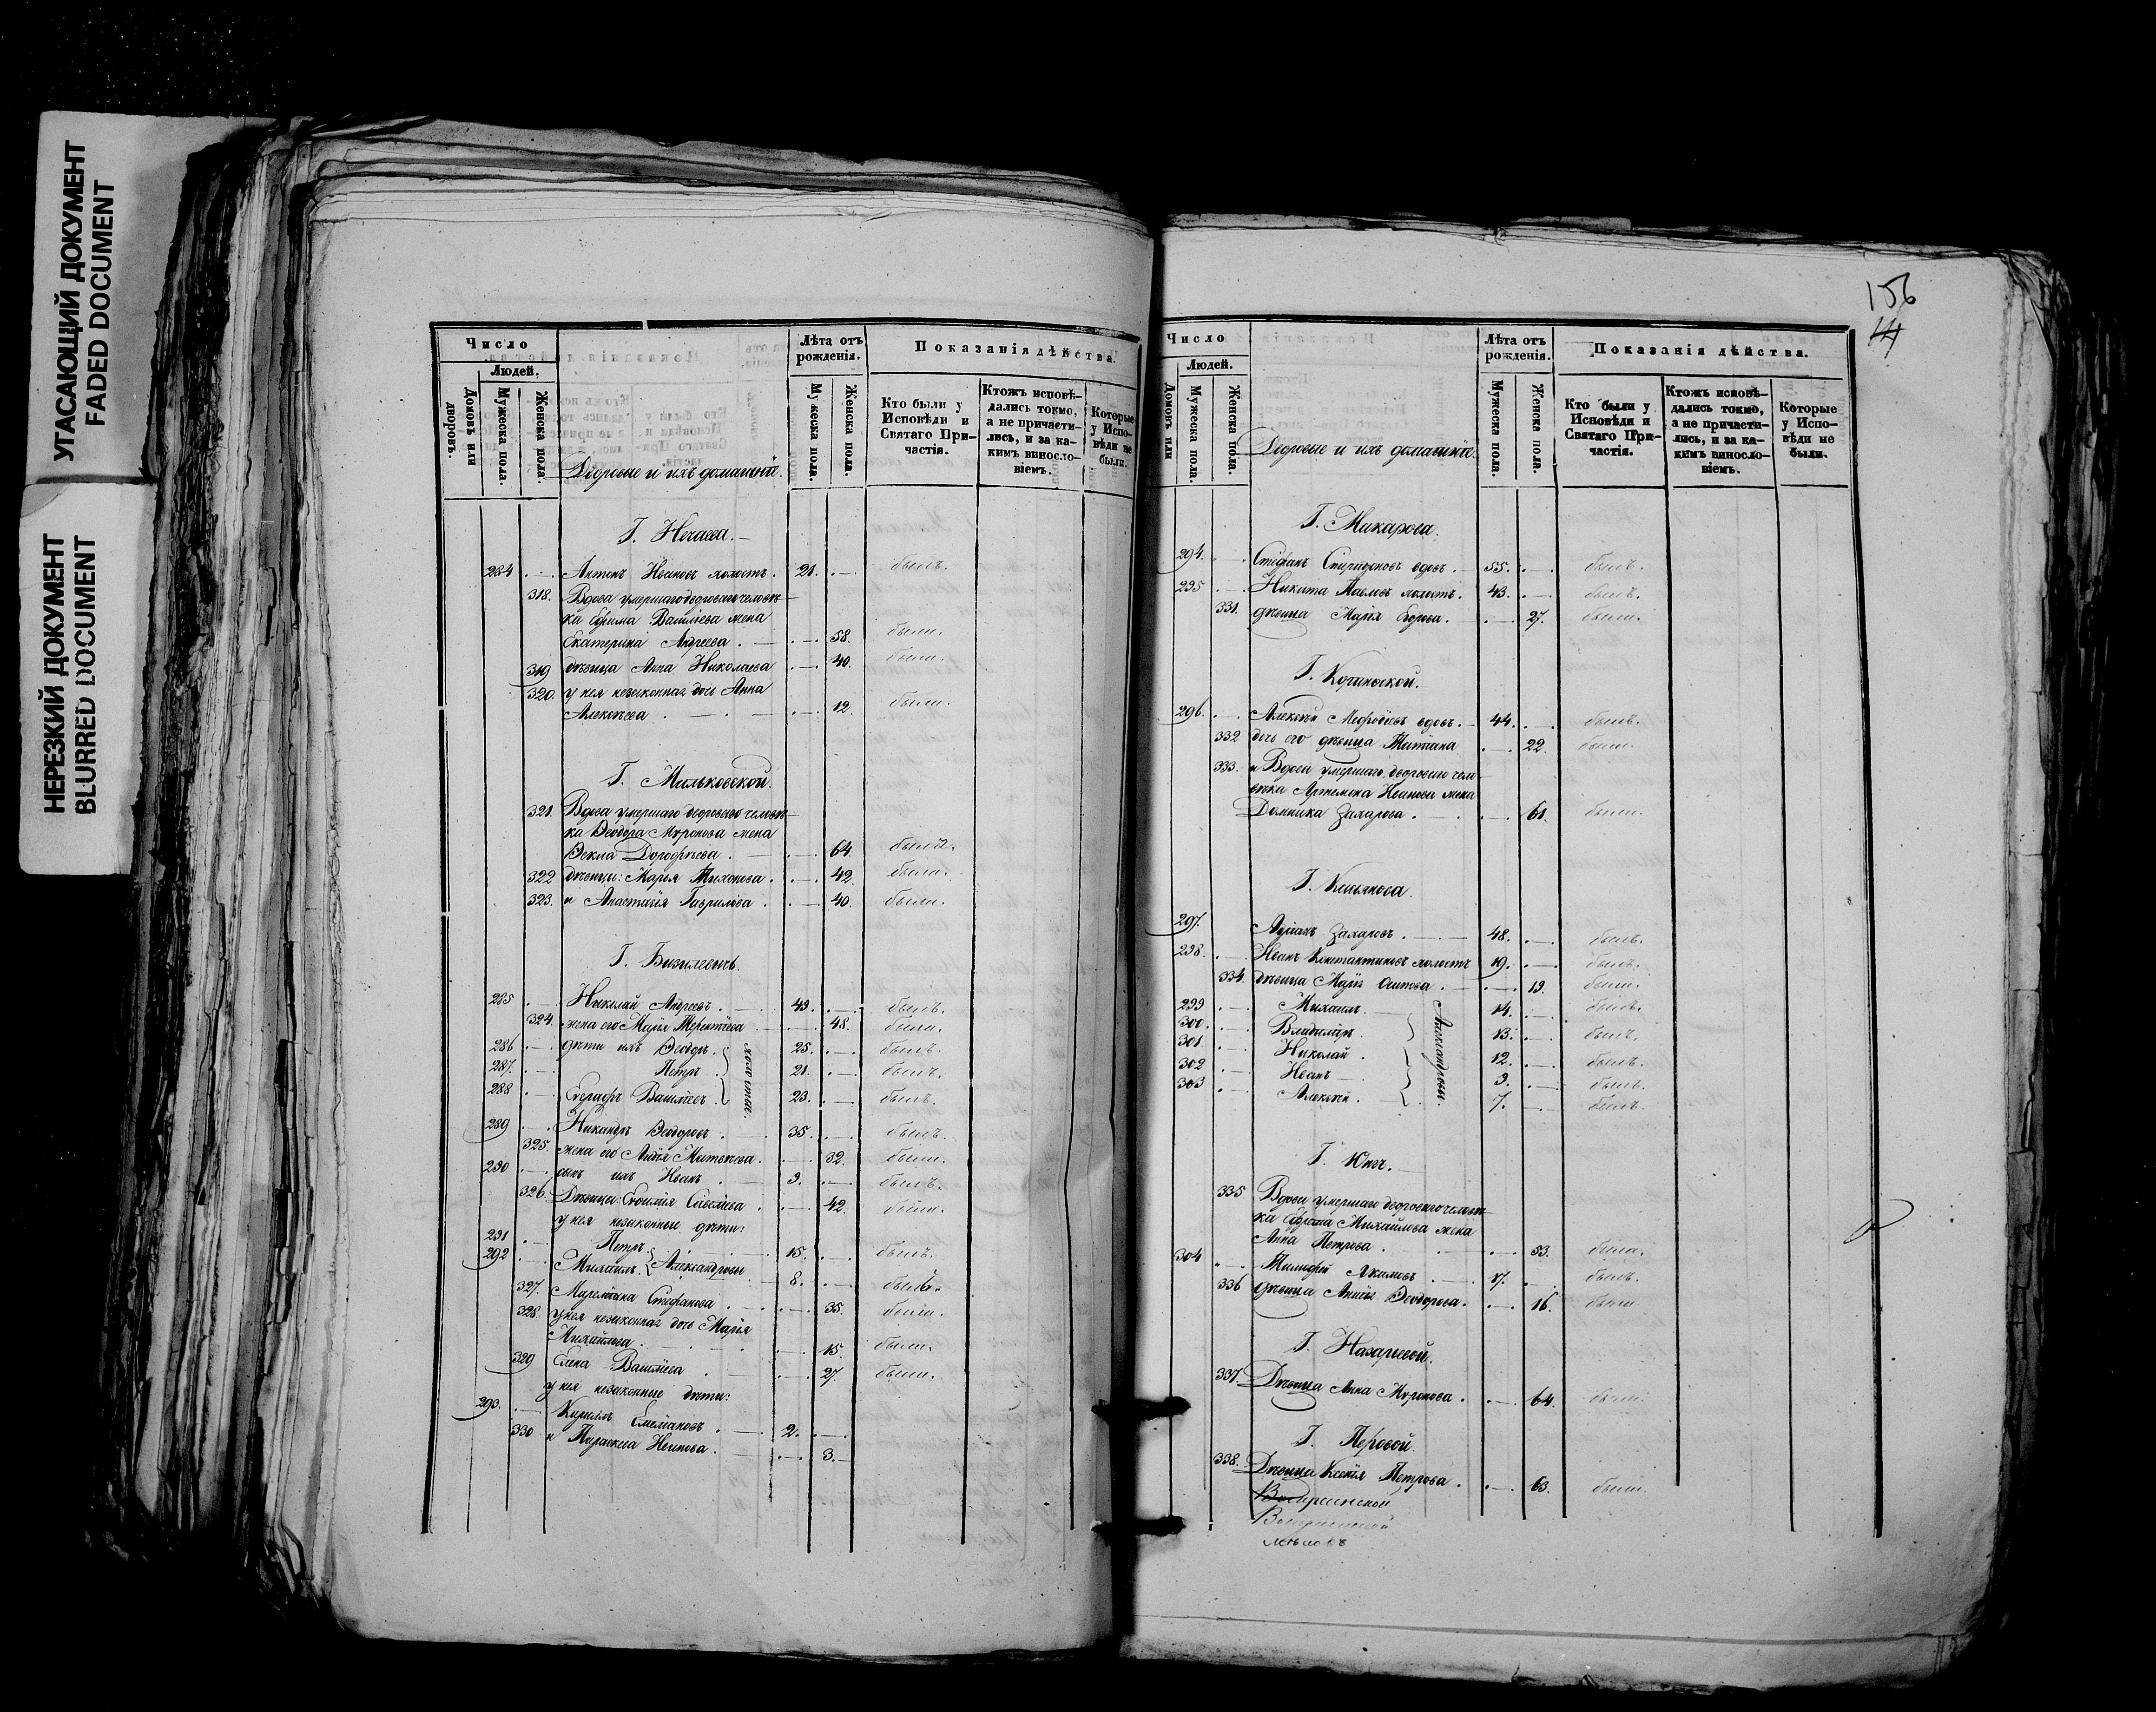 УТАСАЮЩИЙ ДОКУМЕНТ
FADED DOCUMENT
НЕРЕЗКИЙ ДОКУМЕНТ
BLURRED DOCUMENT
Число
Людей.
Домовъ или дворовъ.
Мужеска пола.
Женска пола.
Дворовые и ихъ домашніе.
Лѣта отъ рожденія.
Мужеска пола.
Женска пола.
Показанія дѣйства.
Кто были у Исповѣди и Святаго Причастія.
Ктожъ исповѣдались токмо, а не причастились, и за какимъ винословіемъ.
Которые у Исповѣди не были.
284 Антонъ Ивановъ холостъ. 21. былъ.
318. Вдова умершаго двороваго человѣ-
ка Ефима Васильева жена
Екатерина Андреева. 58. была.
319 дѣвица Анна Николаева 40. была.
320. у нея незаконная дочь Анна
Алексѣева 12. была.
Г. Мильковской.
321. Вдова умершаго двороваго человѣ-
ка Ѳеодора Миронова жена
Ѳекла Дороѳѣева. 64. была.
322 дѣвицы: Марія Тихонова. 42. была.
323. и Анастасія Гаврилова. 40. была.
285 Николай Андреевъ. 49. былъ.
324. жена его Марія Терентіева 48. была.
286 дѣти ихъ Ѳеодоръ 25. былъ.
287. Петръ 21. былъ.
288 Василіевъ 23. былъ.
холосты.
289 Никандръ Ѳеодоровъ 35. былъ.
325. жена его Матвѣева. 32. была.
290 сынъ ихъ Иванъ 9. былъ.
326. Дѣвицы: 42. была.
у нея незаконные дѣти:
291 Петръ 15. былъ.
292 Михаилъ Александровы 8. былъ.
327. Стефанова 35. была.
328. у нея незаконная дочь Марія
Михайлова 15. была.
329 Елена Василіева 27. была.
у нея незаконные дѣти:
293. Кириллъ 2.
330 и Параскева Иванова. 3.
156
14
Число
Людей.
Домовъ или
Мужеска пола.
Женска пола.
Дворовые и ихъ домашніе.
Лѣта отъ рожденія.
Мужеска пола.
Женска пола.
Показанія дѣйства.
Кто были у Исповѣди и Святаго Причастія.
Ктожъ исповѣдались токмо, а не причастились, и за какимъ винословіемъ.
Которые у Исповѣди не были.
Г. Макарова.
294. Стефанъ Спиридоновъ вдовъ. 55. былъ.
295 Никита Павловъ холостъ. 43. былъ.
331. дѣвица Марія Егорова. 27. была.
296. Алексѣй Меѳодіевъ вдовъ. 44. былъ.
332 дочь его дѣвица Татіана 22. была.
333. и Вдова умершаго двороваго чело-
вѣка Артемона Иванова жена
Домника Захарова. 61. была.
297. Захаровъ. 48. былъ.
298. Иванъ Константиновъ холостъ 19. былъ.
334. дѣвица Марія Осипова. 19. была.
299 Михаилъ 14. былъ.
300. Владиміръ 13. былъ.
301 Николай 12. былъ.
302 Иванъ 9. былъ.
303 Алексѣй 7. былъ.
Александровы.
335 Вдова умершаго двороваго человѣ-
ка Михайлова жена
Анна Петрова 53. была.
304 Тимоѳей Акимовъ 17. былъ.
336 дѣвица Ѳеодорова. 16. была.
337. Дѣвица Анна Миронова. 64. была.
Г. Перовой.
338. Дѣвица Ксенія Петрова. 63. была.